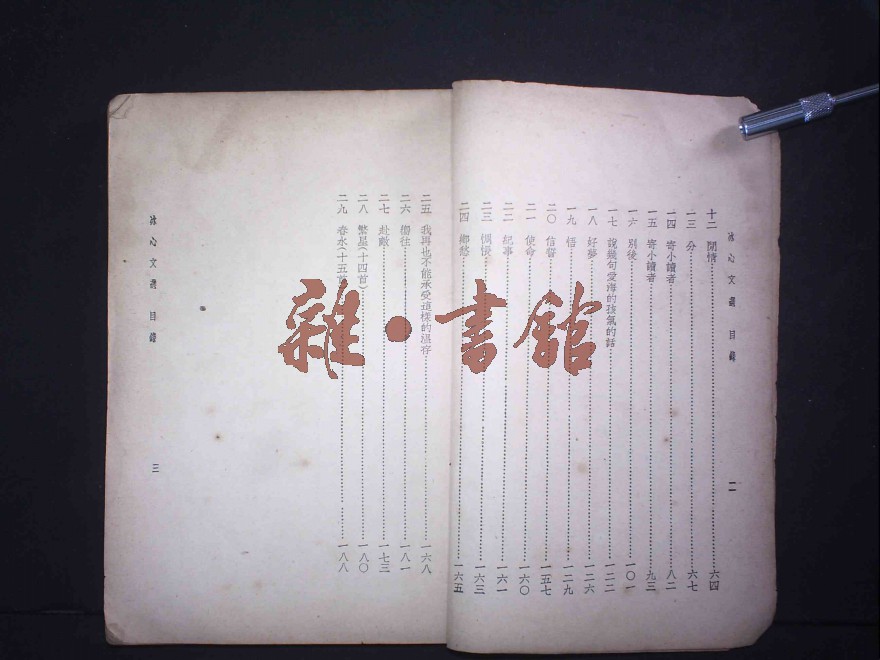 冰心文選 目錄 二
十二 閒情……六四
一三 分……六七
一四 寄小讀者……八二
一五 寄小讀者……九三
一六 別後……一〇一
一七 說幾句愛海的孩氣的話……一二二
一八 好夢……一二六
一九 悟……一二九
二〇 信誓……一五七
二一 使命……一六〇
二二 紀事……一六一
二三 惆悵……一六三
二四 鄉愁……一六五
二五 我再也不能承受這樣的溫存……一六八
二六 嚮往……一八一
二七 赴敵……一七三
二八 繁星(十四首)……一八〇
二九 春水(十五首)……一八八
冰心文選 目錄 三
雜·書館